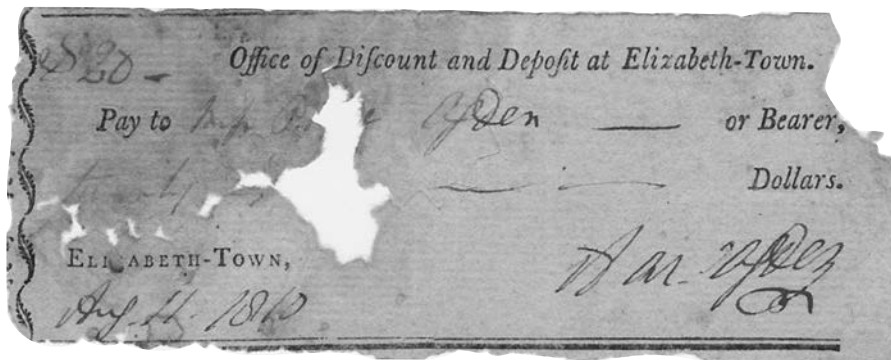 $20 -
Office of Diſcount and Depoſit at Elizabeth-Town.
Pay to Ogden — or Bearer,
twenty — — Dollars.
Elizabeth-Town,
Aug. 1810
Aar. Ogden